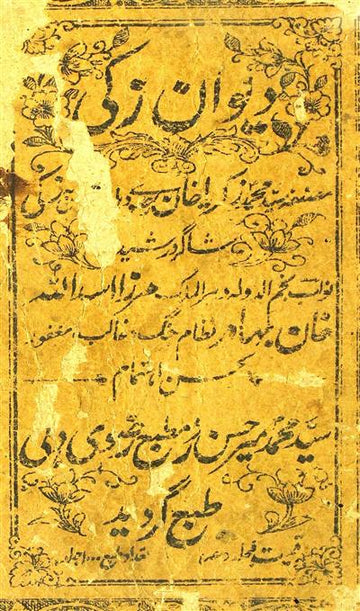 دیوان زکی
مصنفہ سید محمد زکریا خان زکی
شاگرد رشید
نواب نجم الدولہ دبیر الملک مرزا اسد اللہ
خان بہادر نظام جنگ غالب مغفور
بحسن اہتمام
سید محمد میر حسن در مطبع رضوی دہلی
طبع گردید
قیمت فی جلد تعداد طبع ۱۰۰۰ جلد